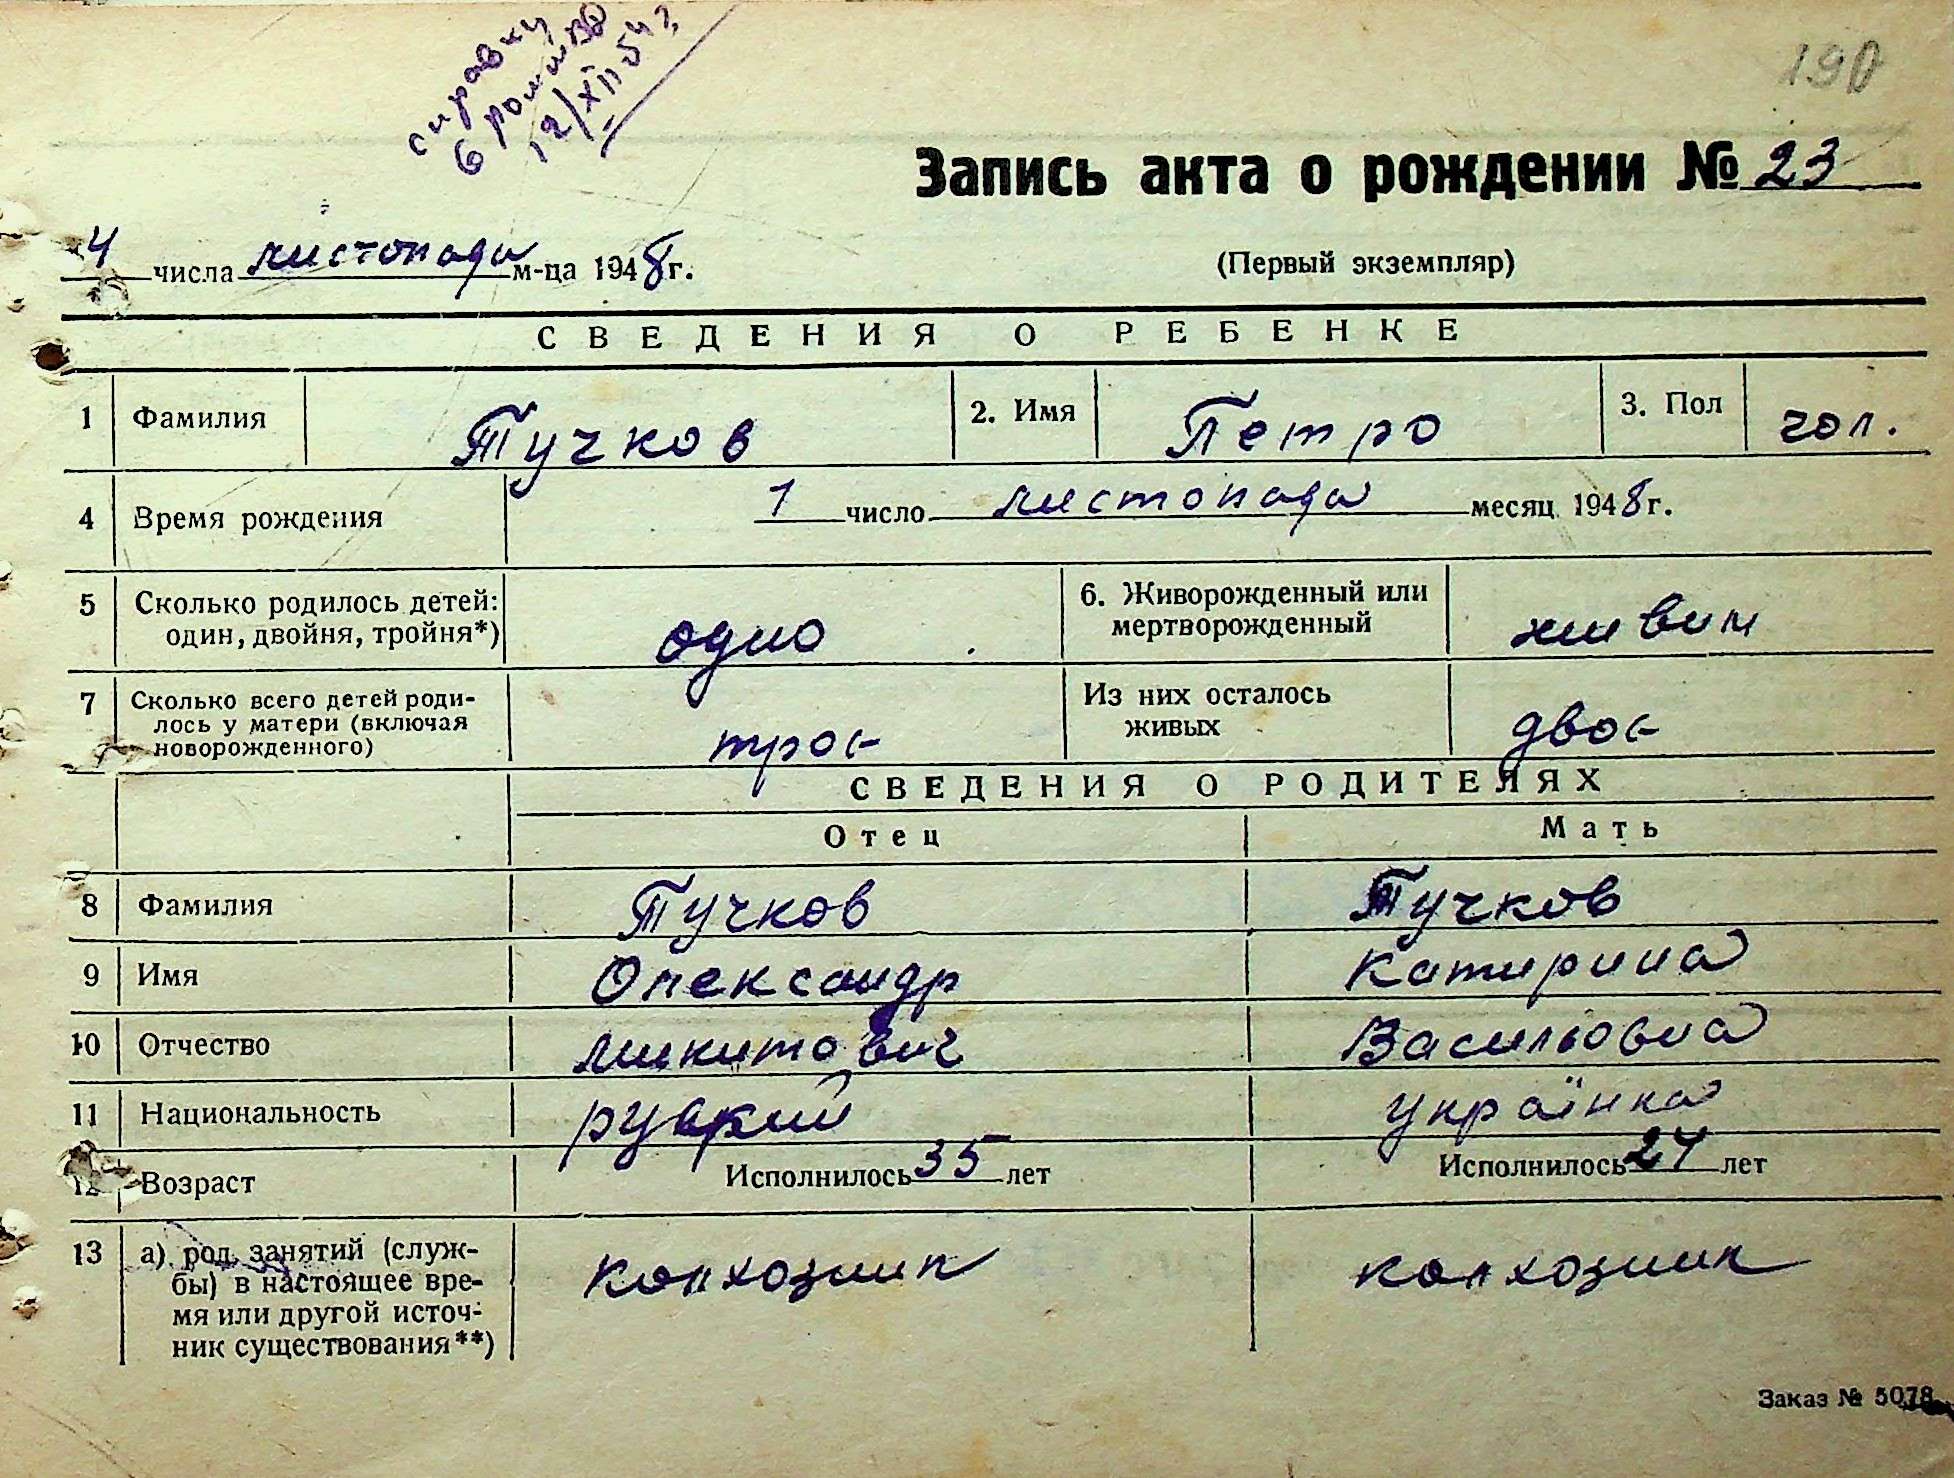 справку
12/XII 54 г.
190
Запись акта о рождении № 23
4 числа листопада м-ца 1948 г.
(Первый экземпляр)
СВЕДЕНИЯ О РЕБЕНКЕ
1 Фамилия Тучков 2. Имя Петро 3. Пол чол.
4 Время рождения 1 число листопада месяц 1948 г.
5 Сколько родилось детей: один, двойня, тройня*) одно 6. Живорожденный или мертворожденный живим
7 Сколько всего детей родилось у матери (включая новорожденного) троє Из них осталось живых двоє
СВЕДЕНИЯ О РОДИТЕЛЯХ
Отец Мать
8 Фамилия Тучков Тучков
9 Имя Олександр Катирина
10 Отчество Микитович Васильовна
11 Национальность руский українка
12 Возраст Исполнилось 35 лет Исполнилось 24 лет
13 а) род занятий (служ-
бы) в настоящее вре-
мя или другой источ-
ник существования**) колхозник колхозник
Заказ № 5078